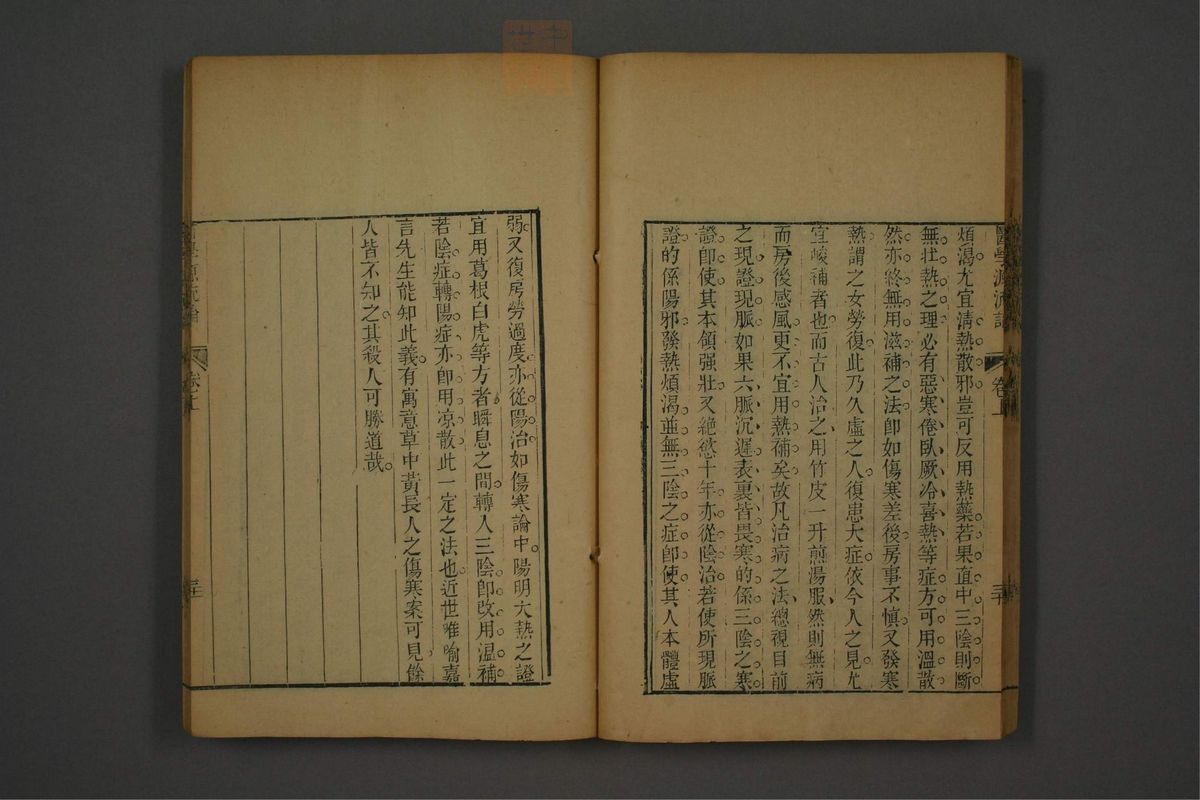 醫學源流論 卷上 三十
煩渴尤宜清熱散邪豈可反用熱藥若果直中三陰則斷
無壯熱之理必有惡寒倦臥厥冷喜熱等症方可用溫散
然亦終無用滋補之法即如傷寒差後房事不慎又發寒
熱謂之女勞復此乃久虛之人復患大症依今人之見尤
宜峻補者也而古人治之用竹皮一升煎湯服然則無病
而房後感風更不宜用熱補矣故凡治病之法總視目前
之現證現脈如果六脈沉遲表裏皆畏寒的係三陰之寒
證即使其本領强壯又絕慾十年亦從陰治若使所現脈
證的係陽邪發熱煩渴並無三陰之症即使其人本體虛
弱又復房勞過度亦從陽治如傷寒論中陽明大熱之證
宜用葛根白虎等方者瞬息之間轉入三陰即改用温補
若陰症轉陽症亦即用凉散此一定之法也近世唯喻嘉
言先生能知此義有寓意草中黃長人之傷寒案可見餘
人皆不知之其殺人可勝道哉